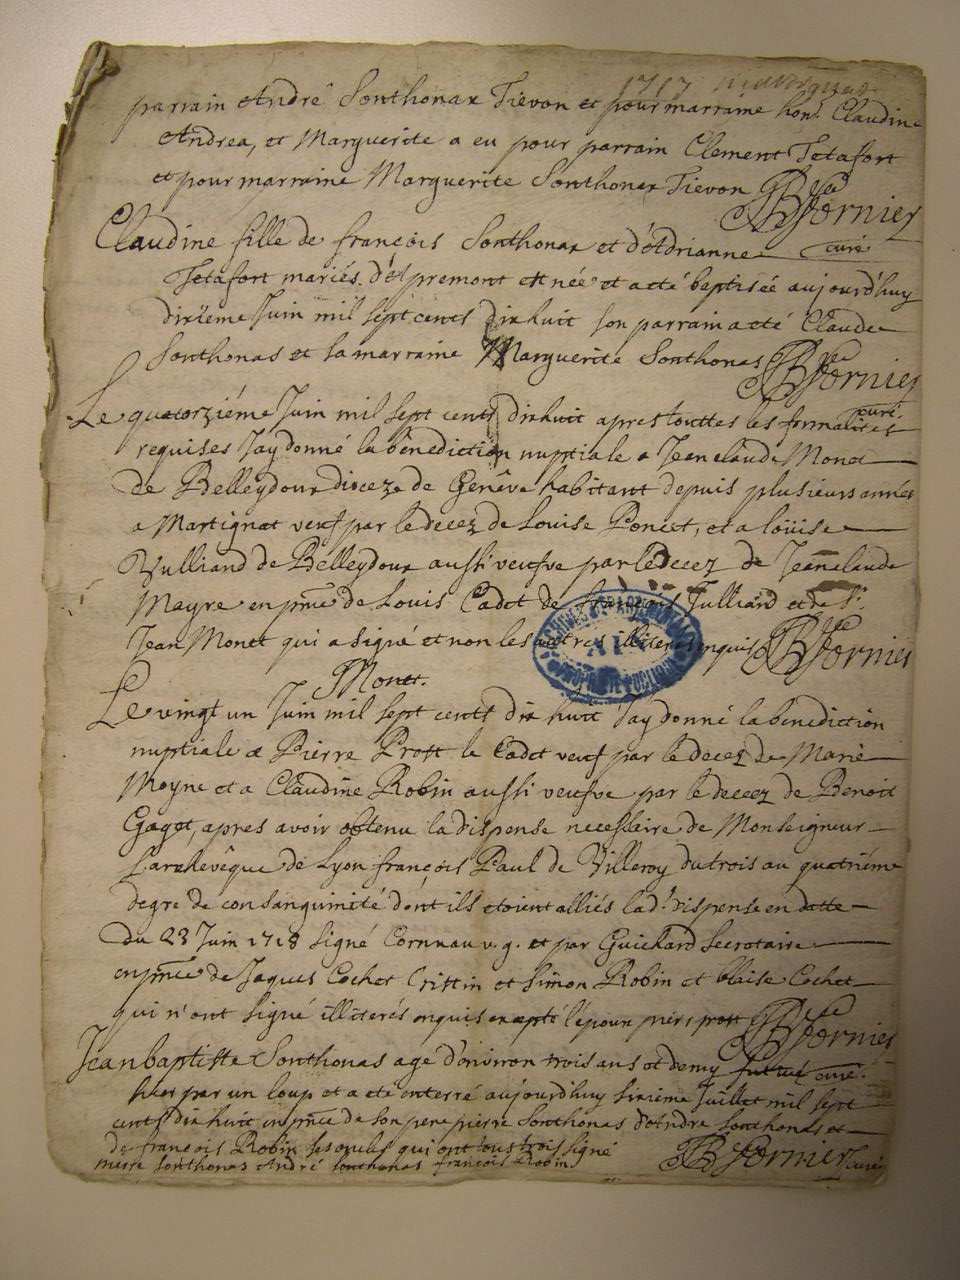 1717
parrain André Sonthonax Tievon et pour marraine hon. Claudine
Andrea, et Marguerite a eu pour parrain Clement Tetafort
et pour marraine Marguerite Sonthonax Tievon Fornier
Claudine fille de françois Sonthonax et d'Adrianne curé
Tetafort mariés d'Espremont est née et a eté baptisée aujourd'huy
dixieme Juin mil sept cents dix huit son parrain a eté Claude
Sonthonas et sa marraine Marguerite Sonthonas Fornier
curé
Le quatorziéme Juin mil sept cents dixhuit apres touttes les formalités
requises J'ay donné la bénediction nuptiale a Jean claude Monet
de Belleydoux dioceze de Genêve habitant depuis plusieurs années
a Martignat veuf par le decez de Louise Poncet, et a loüise
Vulliard de Belleydoux aussi veufve par le decez de Jean claude
Mayre en pnce de Louis Cadet de françois Julliard et de Sr.
Jean Monet qui a signé et non les autres illiterés enquis Fornier
Monet.
Le vingt un Juin mil sept cents dix huit J'ay donné la bénediction
nuptiale a Pierre Prost le Cadet veuf par le decez de Marie
Moyne et a Claudine Robin aussi veufve par le decez de Benoit
Gaget, apres avoir obtenu la dispense necessaire de Monseigneur
L'archevêque de Lyon françois Paul de Villeroy du trois au quatriéme
degre de consanguinité dont ils etoient alliés la d. dispense en datte
du 23 Juin 1718 signé Cornuau v. g. et par Guichard Secretaire
en pnce de Jaques Cochet Crittin et Simon Robin et blaise Cochet
qui n'ont signé illiterés enquis excepté l'époux piere prost Fornier
curé.
Jean baptiste Sonthonas age d'environ trois ans et demy fut tué
hier par un loup et a eté enterré aujourd'huy sixieme Juillet mil sept
cents dix huit en pnce de son pere pierre Sonthonas d'Andre Sonthonas et
de françois Robin ses oncles qui ont tous trois signé
Sonthonas André Sonthonas françois Robin Fornier curé